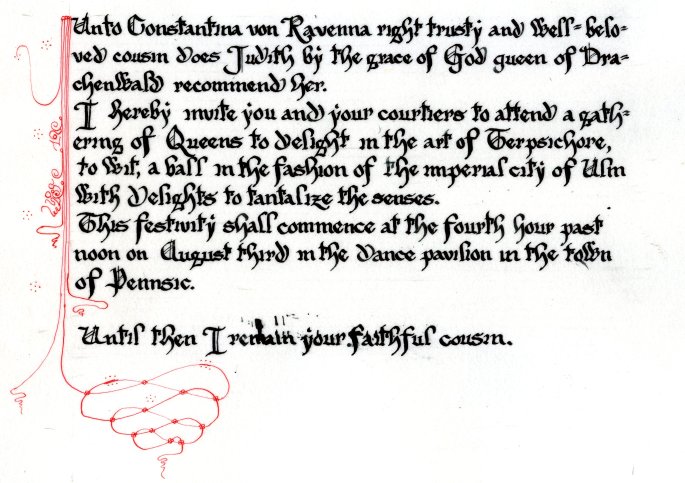 Unto Constantina von Ravenna right trusty and well=belo-
ved cousin does Judith by the grace of God queen of Dra-
chenwald recommend her.
I hereby invite you and your courtiers to attend a gath=
ering of Queens to delight in the art of Terpsichore,
to wit, a ball in the fashion of the imperial city of Ulm
with Delights to tantalize the senses.
This festivity shall commence at the fourth hour past
noon on August third in the dance pavilion in the town
of Pennsic.
Until then I remain your faithful cousin.